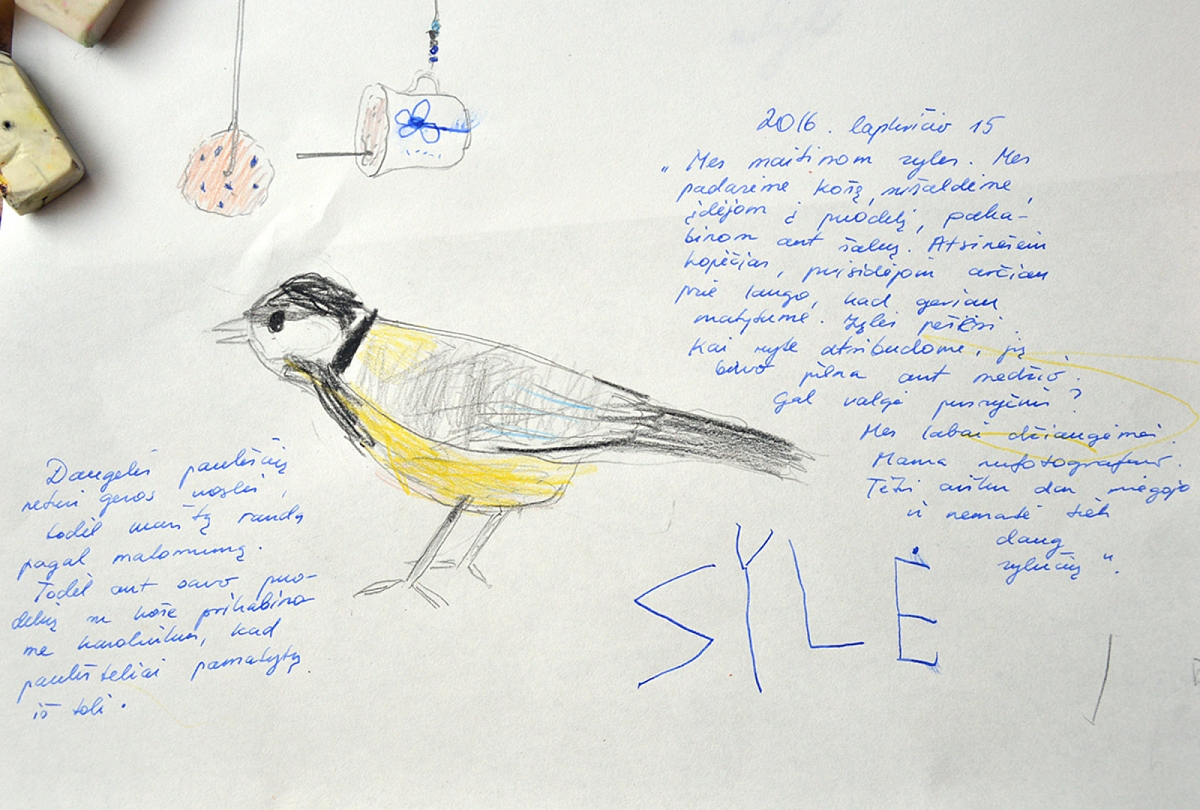 2016. lapkričio 15
„Mes maitinom zyles. Mes
padarėme košę, sušaldėme,
įdėjom į puodelį, paka-
binom ant šakų. Atsinešėm
kopėčias, prisidėjom arčiau
prie lango, kad geriau
matytume. Zylės pešėsi.
Kai ryte atsibudome, jų
buvo pilna ant medžio.
Gal valgė pusryčius?
Mes labai džiaugėmės
Mama nufotografavo.
Tėtis anksti dar miegojo
ir nematė tiek
daug
zylučių“.
Daugelis paukščių
neturi geros uoslės,
todėl maistą randa
pagal matomumą.
Todėl ant savo puo-
delių su koše prikabino
me karoliukus, kad
paukšteliai pamatytų
iš toli.
SYLĖ